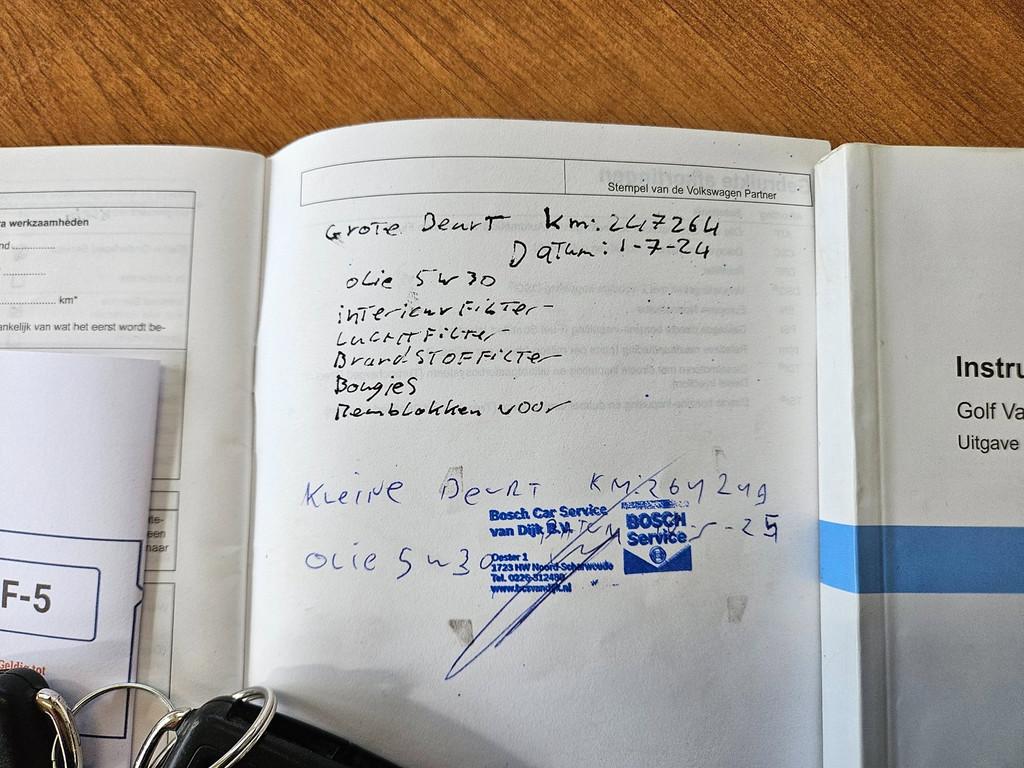 a werkzaamheden
nd
km*
ankelijk van wat het eerst wordt be-
te-
een
naar
F-5
Geldig tot
Stempel van de Volkswagen Partner
Grote Beurt Km: 247264
Datum: 1-7-24
olie 5w30
interieurfilter-
Luchtfilter-
Brandstoffilter
Bougies
Remblokken voor
Kleine Beurt KM: 264249
Bosch Car Service
van Dijk B.V.
BOSCH
Service
-25
olie 5w30
Oester 1
1723 HW Noord-Scharwoude
Tel. 0226-312480
www.bcsvandijk.nl
Instru
Golf Va
Uitgave